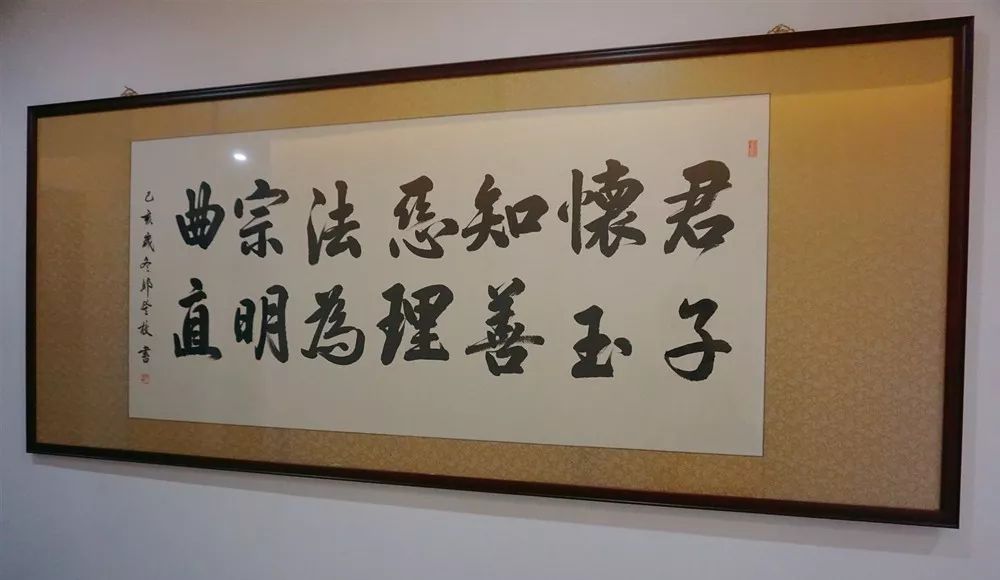 君子
懷玉
知善
惡理
法為
宗明
曲直
己亥歲冬書